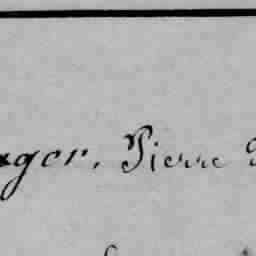 ger, Pierre